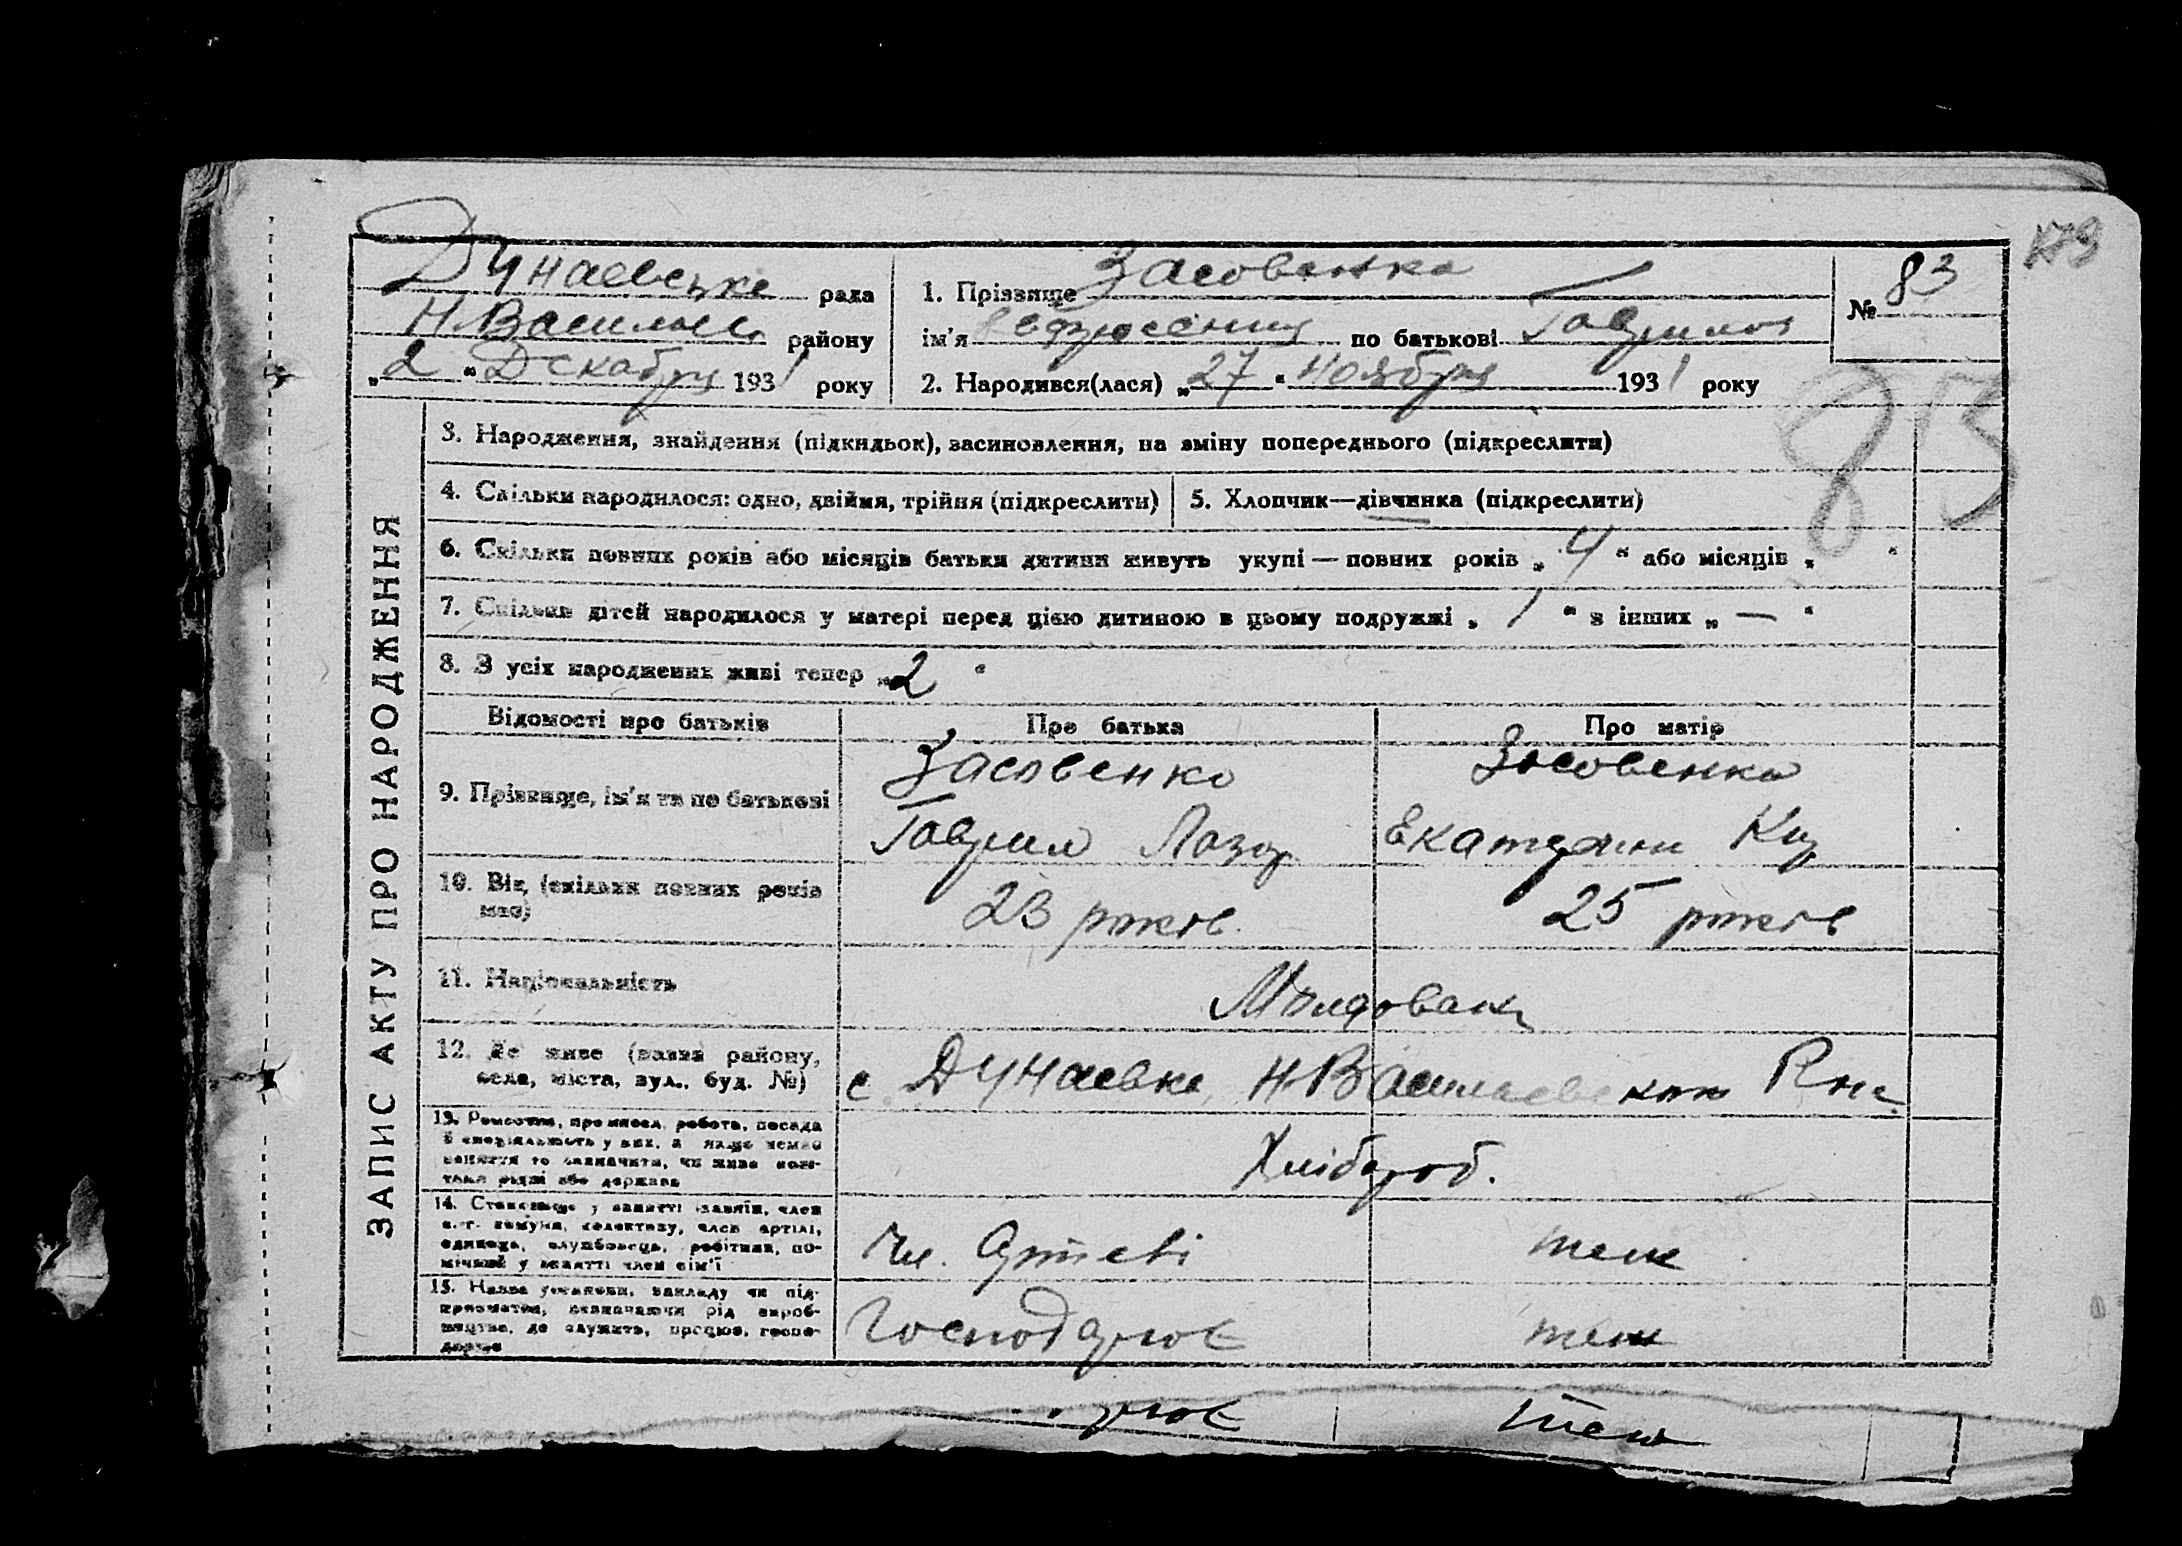 Дунаевська рада
Н.Василье. району
„2“ Декабря 1931 року
1. Прізвище Засовенко
ім'я по батькові Гаврилов
2. Народився(лася) „27“ Ноября 1931 року
№ 83
83
ЗАПИС АКТУ ПРО НАРОДЖЕННЯ
3. Народження, знайдення (підкидьок), засиновлення, на зміну попереднього (підкреслити)
4. Скільки народилося: одно, двійня, трійня (підкреслити)
5. Хлопчик—дівчинка (підкреслити)
6. Скільки повних років або місяців батьки дитини живуть укупі — повних років „4“ або місяців „ “
7. Скільки дітей народилося у матері перед цією дитиною в цьому подружжі „1“ з інших „—“
8. З усіх народжених живі тепер „2“
Відомості про батьків Про батька Про матір
9. Прізвище, ім'я та по батькові
Засовенко
Гаврил Лазар
Засовенко
Екатерини
10. Вік (скільки повних років має)
23 років
25 років
11. Національність
Молдован
12. Де живе (назва району, села, міста, вул., буд. №)
с. Дунаевка, Н-Васильевского Р-на
13. Ремество, промисел, робота, посада й спеціяльність у них, а якщо немає заняття то зазначити, чи живе коштами рідні або держави
Хлібороб.
14. Становище у занятті
Чл. Артелі
теж
15. Назва установи, закладу чи підприємства, зазначаючи рід виробництва, де служить, працює, господарює
Господарює
теж
рює теж